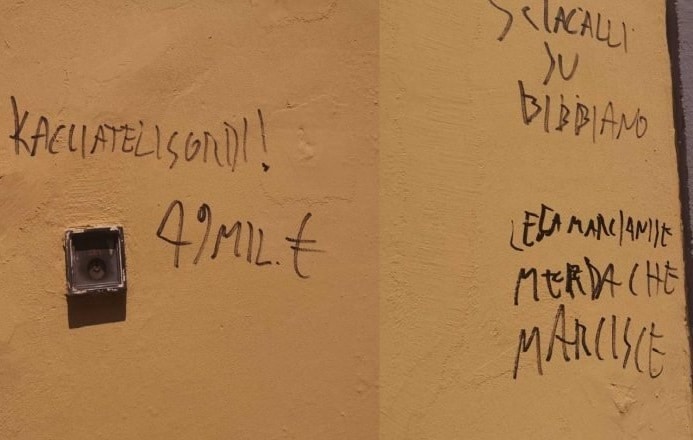 KACCIATELISORDI!
49 MIL. €
SCIACALLI
SU
BIBBIANO
LEGA MARCIANISE
MERDA CHE
MARCISCE